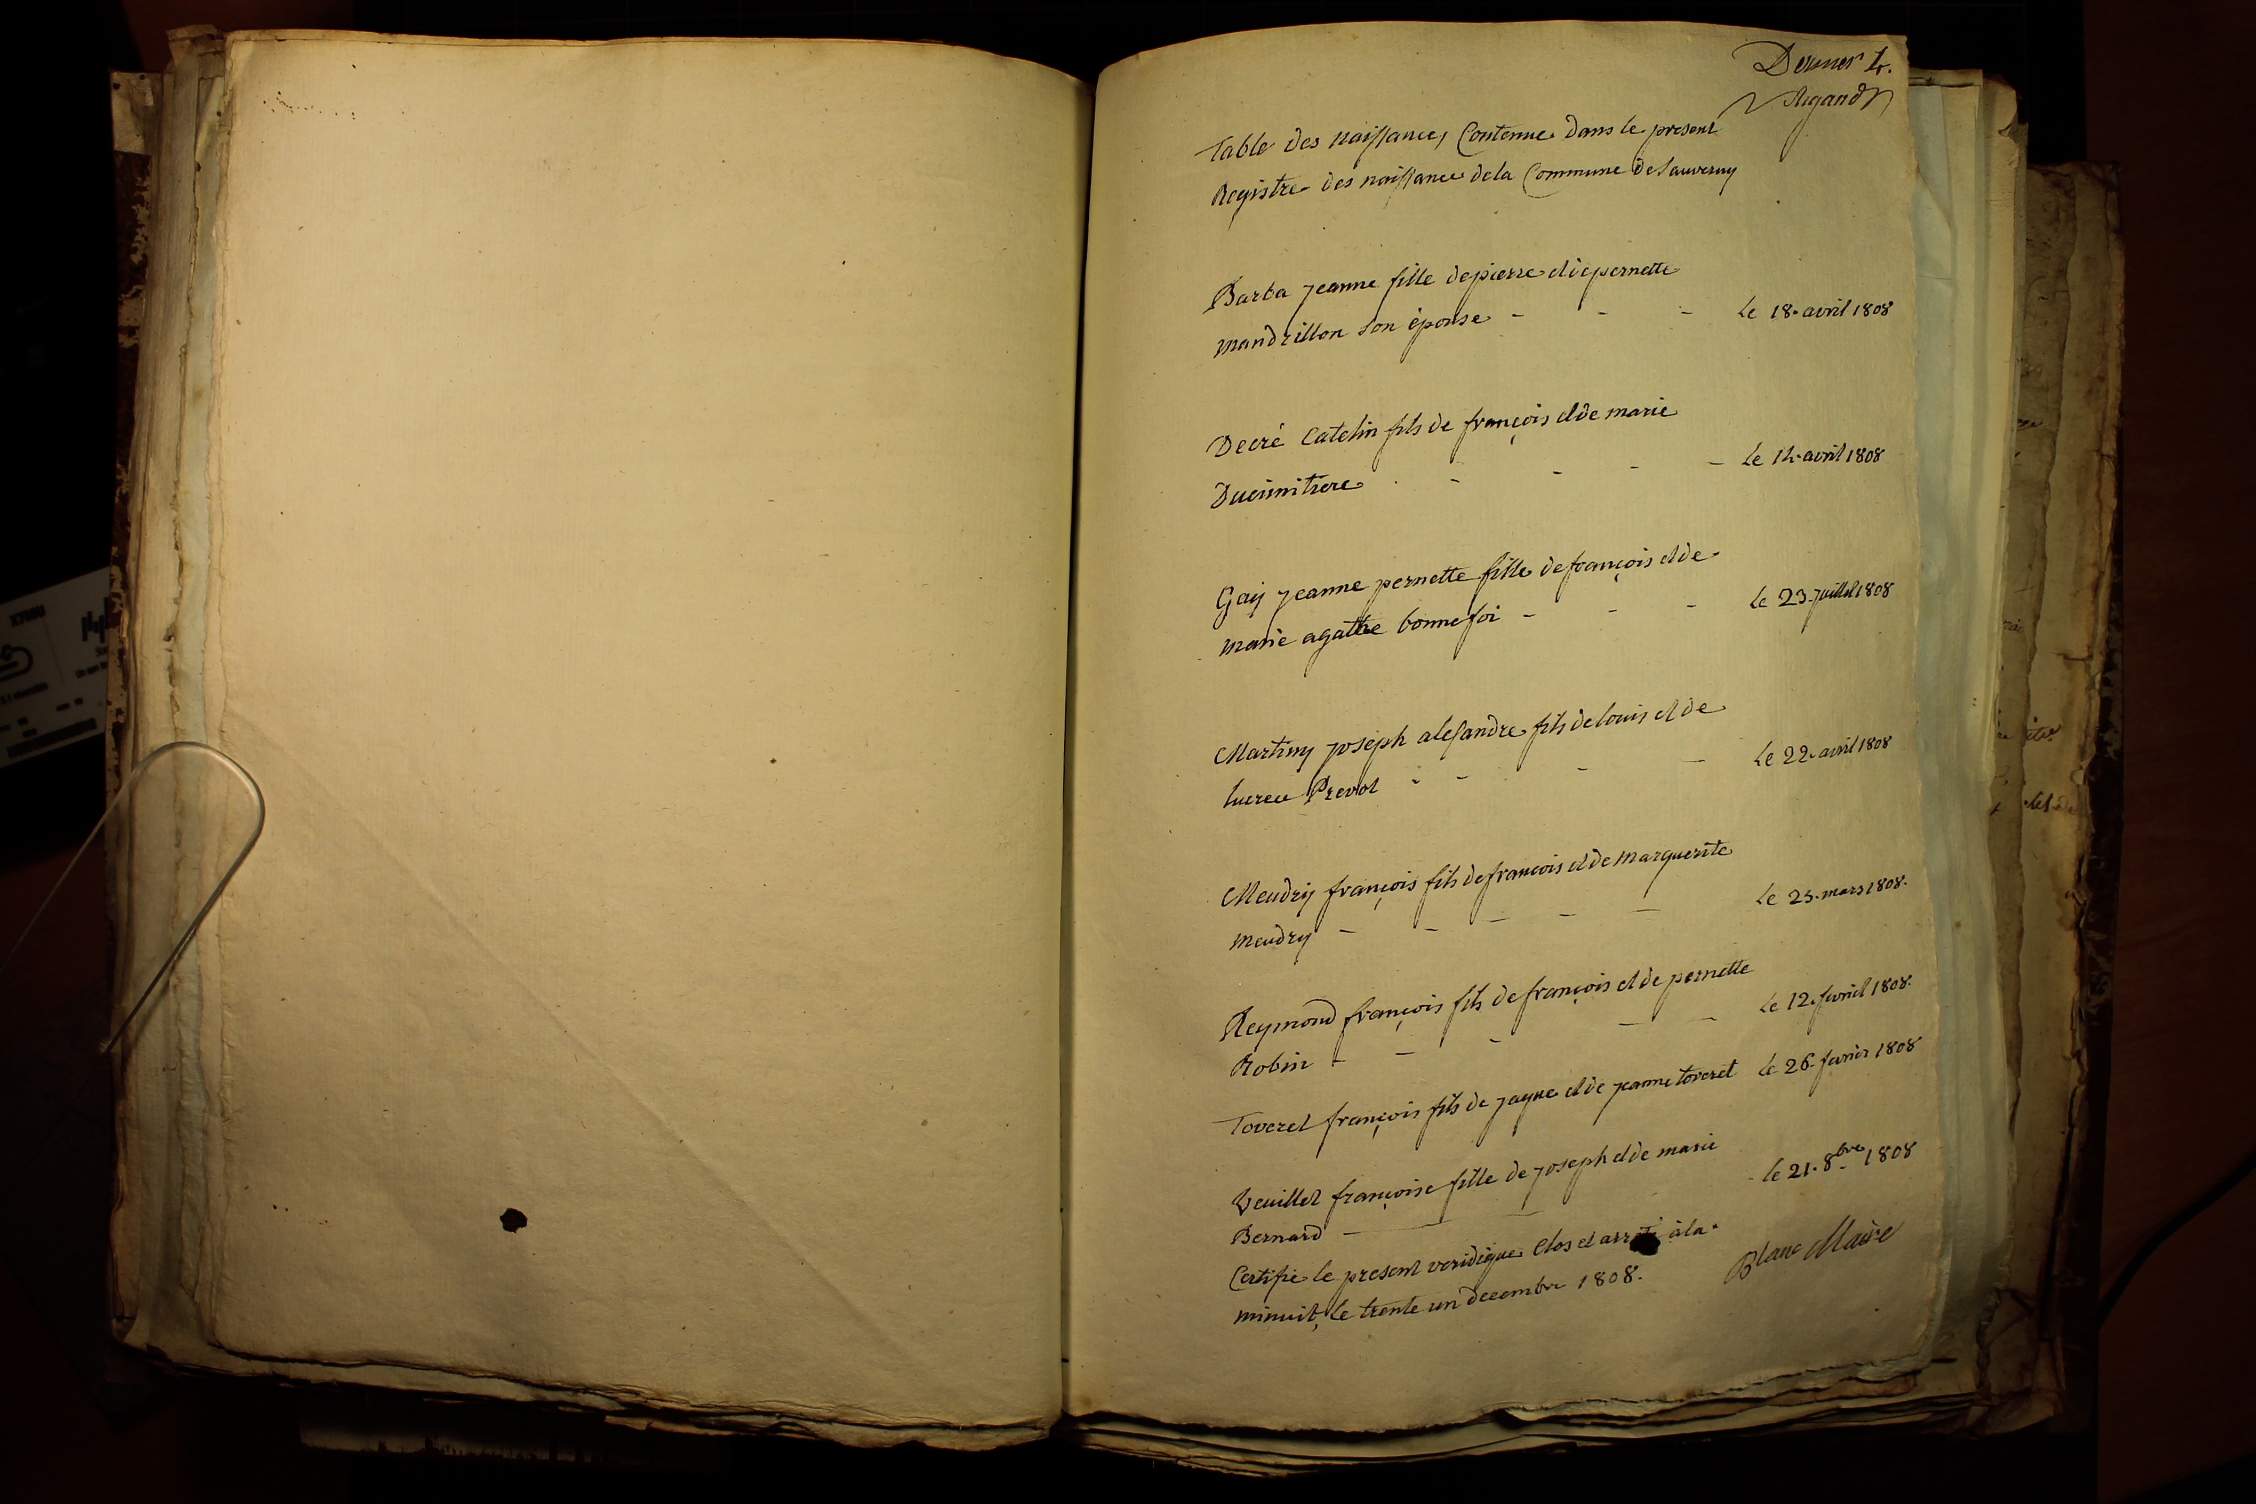 Dernier 4.
Rigaud
Table des naissances Contenue dans le present
Registre des naissance de la Commune de Sauverny
Barba jeanne fille de pierre et de pernette
mandrillon son épouse - - - Le 18. avril 1808
Decré Catelin fils de françois et de marie
Ducimitiere - - - - Le 14. avril 1808
Gay jeanne pernette fille de françois et de
marie agathe bonnefoi - - - Le 23. juillet 1808
Martiny joseph alexandre fils de louis et de
lucrece Prevot - - - - Le 22. avril 1808
Meudry françois fils de francois et de marguerite
meudry - - - - - Le 25. mars 1808.
Reymond françois fils de françois et de pernette
Robin - - - - - Le 12. fevriel 1808.
Toveret françois fils de jaque et de jeanne toveret Le 26. fevrier 1808
Veuillet françoise fille de joseph et de marie
Bernard - - - le 21. 8bre 1808
Certifie le present veridique Clos et arreté à la
minuit, le trente un decembre 1808. Blanc Maire